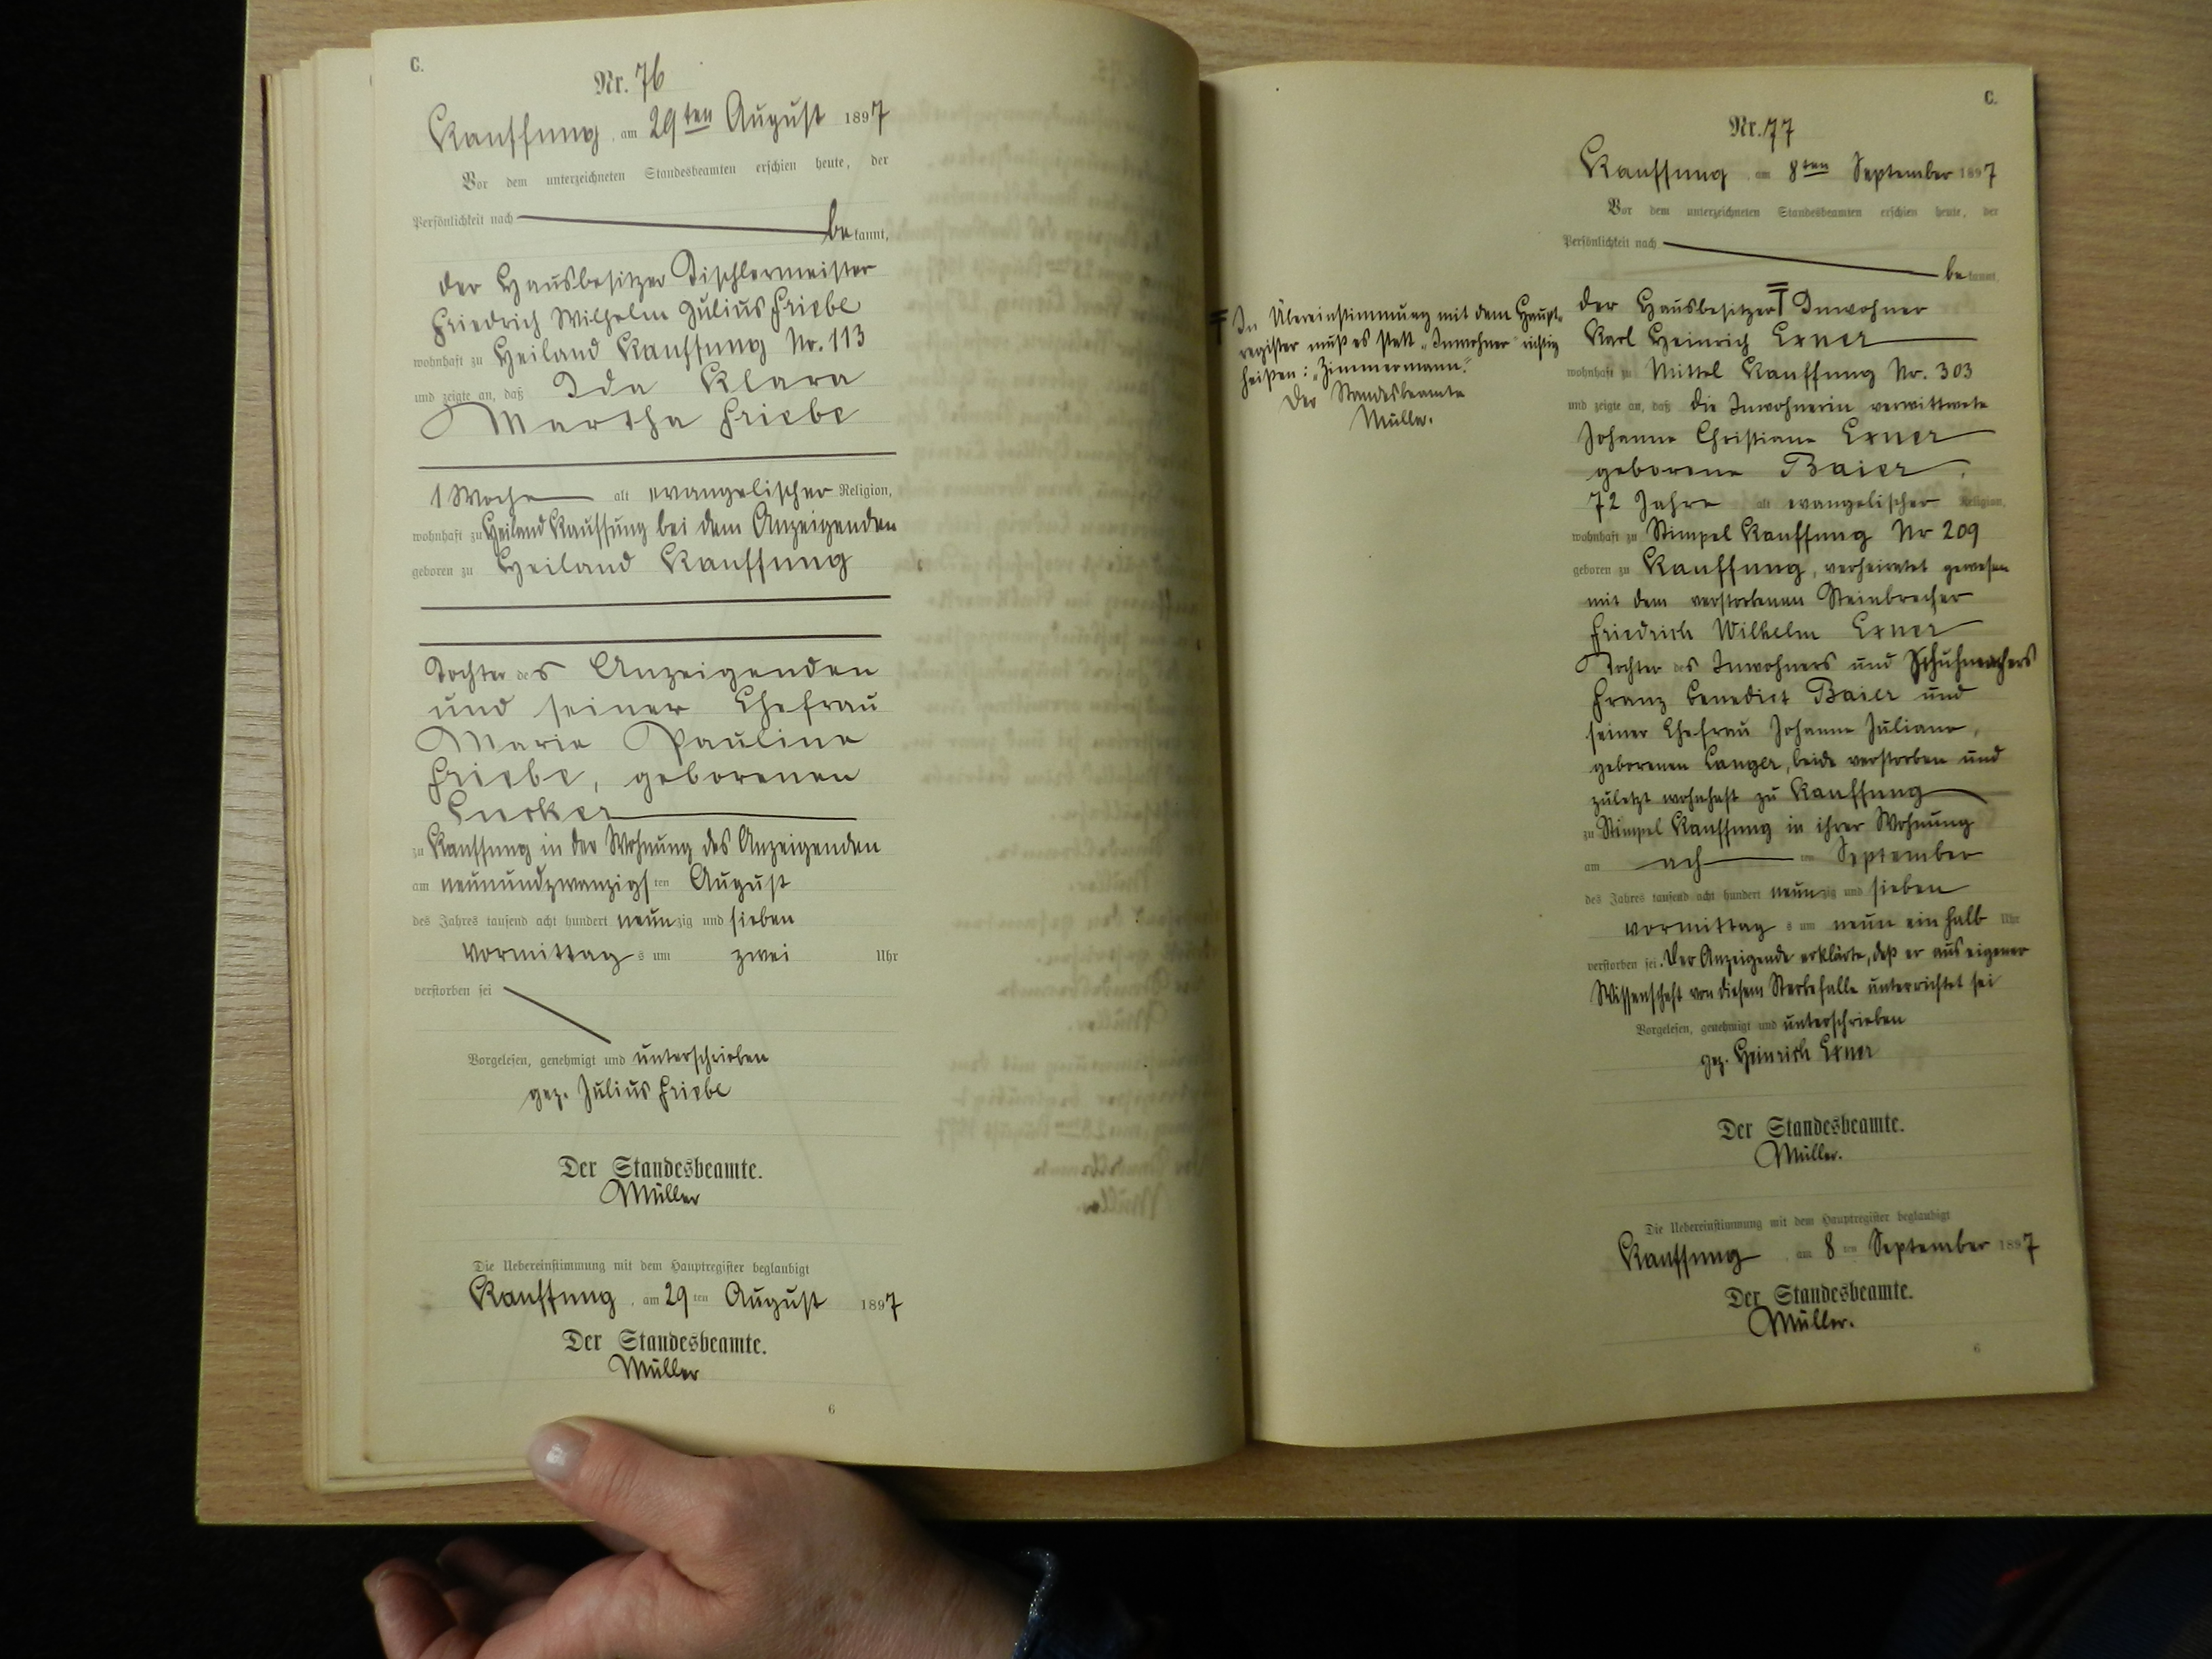 C.
Nr. 76
Kauffung, am 29ten August 1897
Vor dem unterzeichneten Standesbeamten erschien heute, der
Persönlichkeit nach
bekannt,
der Hausbesitzer Tischlermeister
Friedrich Wilhelm Julius Friebe
wohnhaft zu Heiland Kauffung Nr. 113
und zeigte an, daß Ida Klara
Martha Friebe
1 Woche alt evangelischer Religion,
wohnhaft zu Heiland Kauffung bei dem Anzeigenden
geboren zu Heiland Kauffung
Tochter des Anzeigenden
und seiner Ehefrau
Marie Pauline
Friebe, geborenen
zu Kauffung in der Wohnung des Anzeigenden
am neunundzwanzigsten August
des Jahres tausend acht hundert neunzig und sieben
vormittags um zwei Uhr
verstorben sei
Vorgelesen, genehmigt und unterschrieben
gez. Julius Friebe
Der Standesbeamte.
Müller
Die Uebereinstimmung mit dem Hauptregister beglaubigt
Kauffung, am 29ten August 1897
Der Standesbeamte.
Müller
6
C.
Nr. 77
Kauffung, am 8ten September 1897
Vor dem unterzeichneten Standesbeamten erschien heute, der
Persönlichkeit nach
bekannt,
der Hausbesitzer Inwohner
Karl Heinrich Exner
wohnhaft zu Mittel Kauffung Nr. 303
und zeigte an, daß die Inwohnerin verwittwete
Johanne Christiane Exner
geborene Baier,
72 Jahre alt evangelischer Religion,
wohnhaft zu Stimpel Kauffung Nr 209
geboren zu Kauffung, verheiratet gewesen
mit dem verstorbenen Steinbrecher
Friedrich Wilhelm Exner
Tochter des Inwohners und Schuhmachers
Franz Benedict Baier und
seiner Ehefrau Johanne Juliane,
geborenen Langer, beide verstorben und
zuletzt wohnhaft zu Kauffung
zu Stimpel Kauffung in ihrer Wohnung
am ach ten September
des Jahres tausend acht hundert neunzig und sieben
vormittags um neun ein halb Uhr
verstorben sei. Der Anzeigende erklärte, daß er aus eigener
Wissenschaft von diesem Sterbefalle unterrichtet sei
Vorgelesen, genehmigt und unterschrieben
gez. Heinrich Exner
Der Standesbeamte.
Müller.
Die Uebereinstimmung mit dem Hauptregister beglaubigt
Kauffung, am 8ten September 1897
Der Standesbeamte.
Müller.
6
In Übereinstimmung mit dem Haupt-
register muß es statt „Inwohner" richtig
heißen: „Zimmermann."
Der Standesbeamte
Müller.